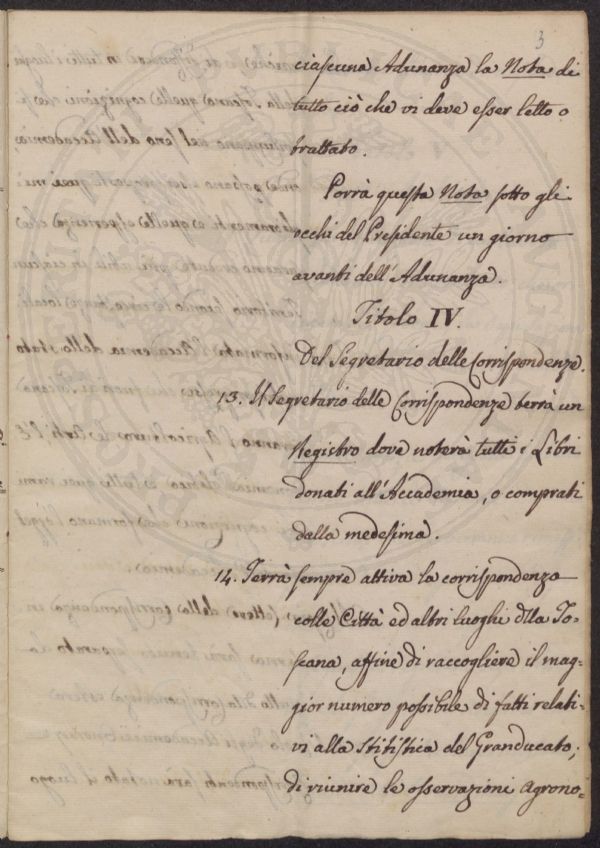 3
ciascuna Adunanza la Nota di
tutto ciò che vi deve esser letto o
trattato.
Porrà questa Nota sotto gli
occhi del Presidente un giorno
avanti dell'Adunanza.
Titolo IV.
Del Segretario delle Corrispondenze.
13. Il Segretario delle Corrispondenze terrà un
Registro dove noterà tutti i Libri
donati all'Accademia, o comprati
dalla medesima.
14. Terrà sempre attiva la corrispondenza
colle Città ed altri luoghi dlla To-
scana, affine di raccogliere il mag-
gior numero possibile di fatti relati-
vi alla Stitistica del Granducato,
di riunire le osservazioni agrono-